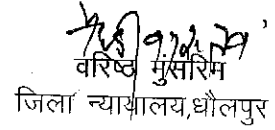 वरिष्ठ मुंसरिम
जिला न्यायालय,धौलपुर